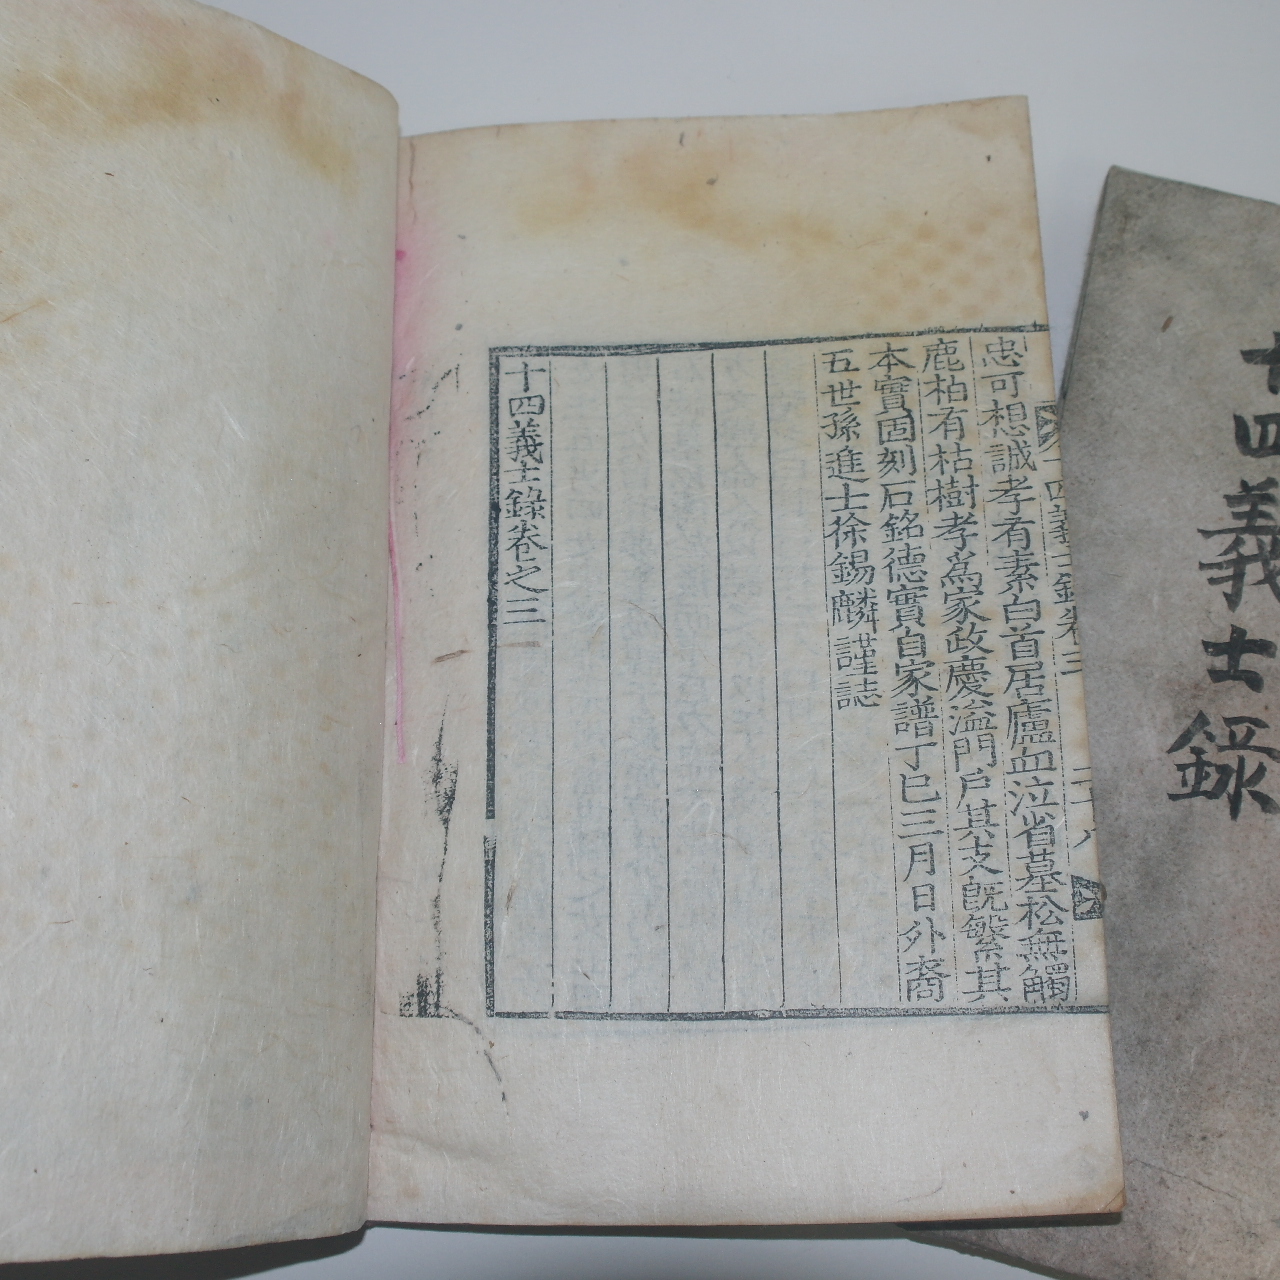 十四義士錄
十四義士錄卷三 二十八
忠可想誠孝有素白首居廬血泣省墓松無觸
鹿柏有枯樹孝爲家政慶溢門戶其支旣繁其
本實固刻石銘德實自家譜丁巳三月日外裔
五世孫進士徐錫麟謹誌
十四義士錄卷之三